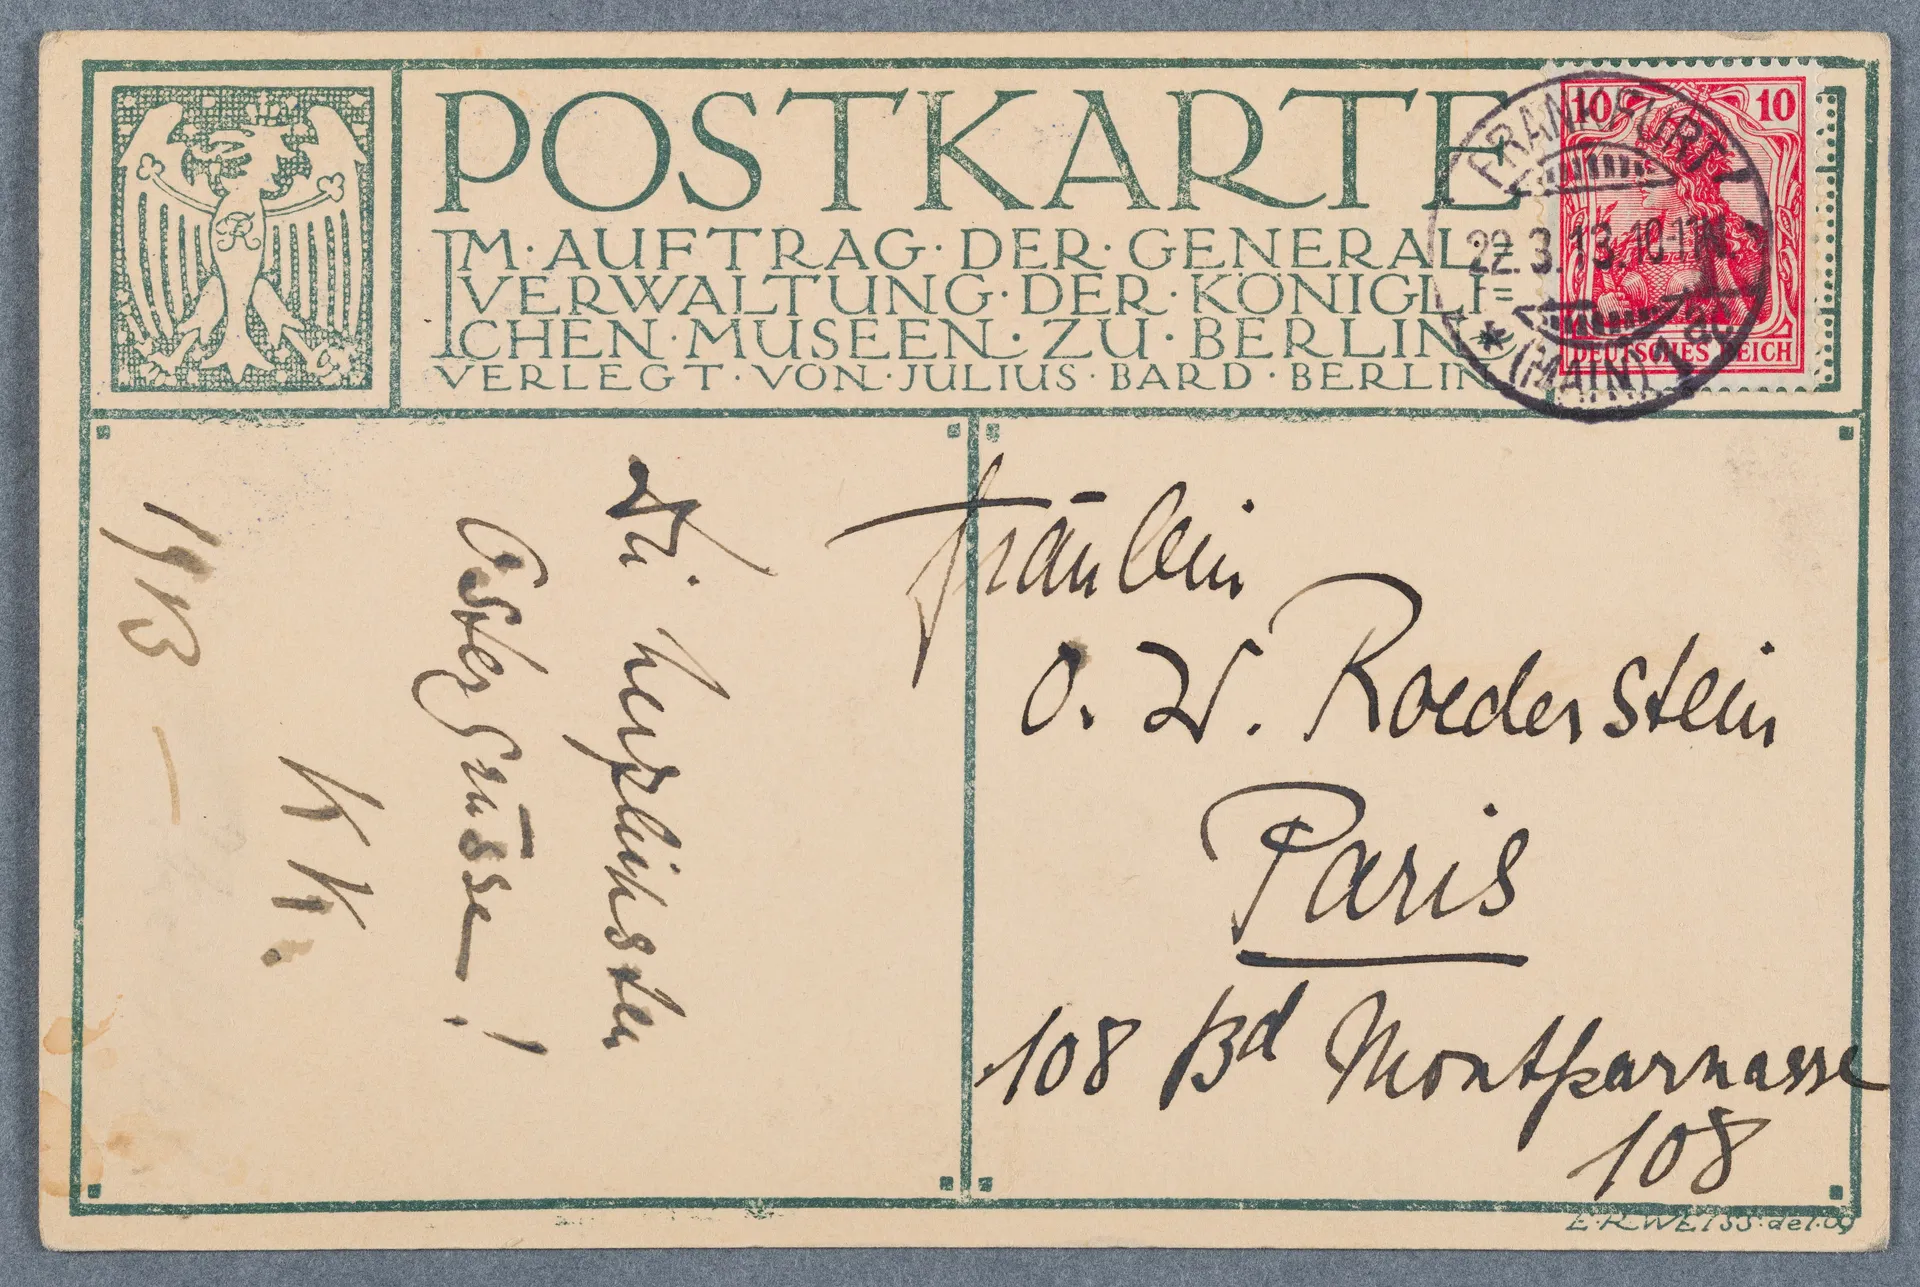 POSTKARTE
IM·AUFTRAG·DER·GENERAL·=
VERWALTUNG·DER·KÖNIGLI=
CHEN·MUSEEN·ZU·BERLIN
VERLEGT·VON·JULIUS·BARD·BERLIN
10 10
DEUTSCHES REICH
FRANKFURT
22.3.13.10-11N.
* (MAIN) 1
Die herzlichsten
Ostergrüsse!
KK.
1913 —
Fräulein
O. W. Roederstein
Paris
108 Bd Montparnasse
108
E·R·WEISS·del·09